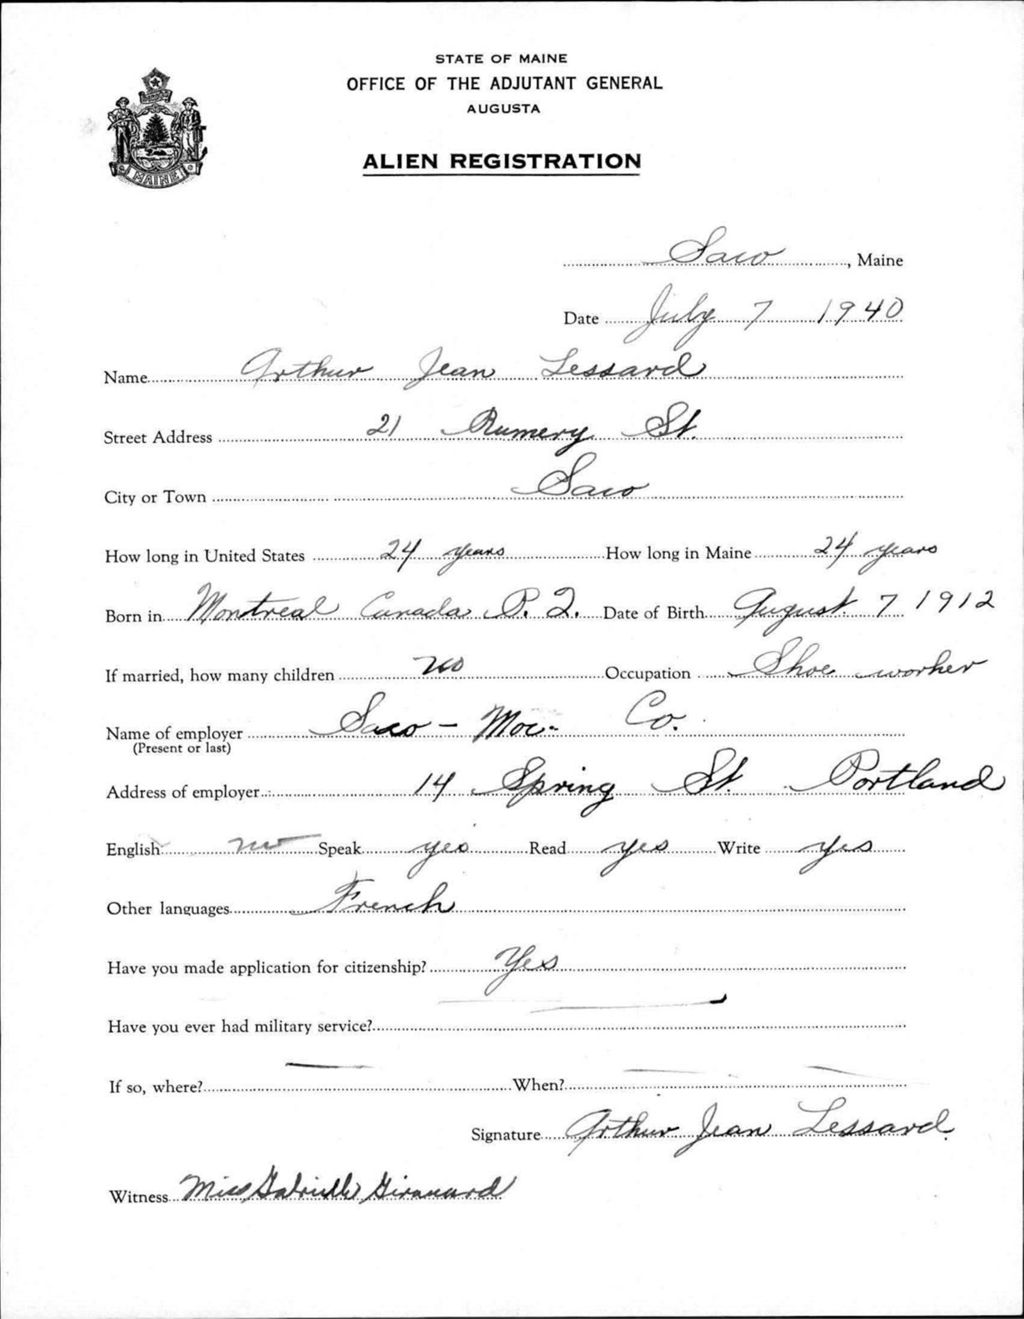 STATE OF MAINE
OFFICE OF THE ADJUTANT GENERAL
AUGUSTA
ALIEN REGISTRATION
MAINE
Saco, Maine
Date July 7 1940
Name Arthur Jean Lessard
Street Address 21 Rumery St.
City or Town Saco
How long in United States 24 years How long in Maine 24 years
Born in Montreal Canada P. Q. Date of Birth August 7 1912
If married, how many children no Occupation Shoe worker
Name of employer Saco - Moc - Co.
(Present or last)
Address of employer 14 Spring St Portland
English no Speak yes Read yes Write yes
Other languages French
Have you made application for citizenship? Yes
Have you ever had military service? —
If so, where? — When? —
Signature Arthur Jean Lessard
Witness Miss Gabrielle